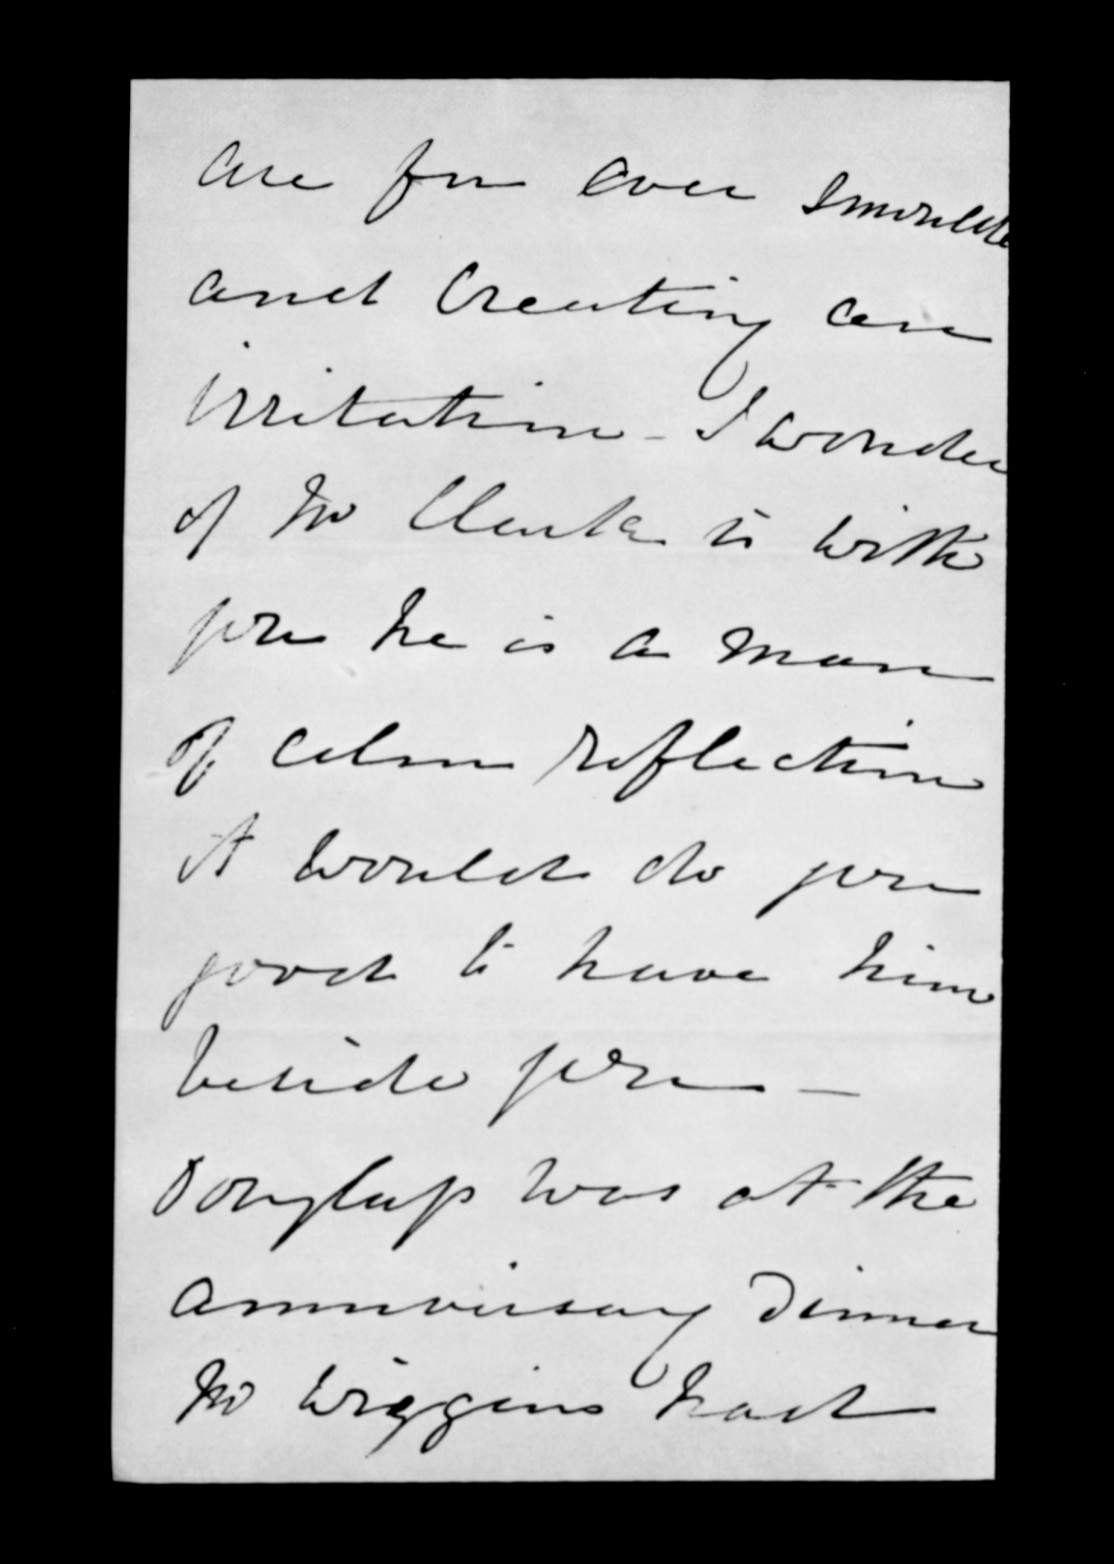 are for ever smoulde
and creating an
irritation - I wonder
if Mr Clarke is with
you he is a man
of calm reflection
it would do you
good to have him
beside you -
Douglas was at the
anniversary Dinner
Mr Wiggins had